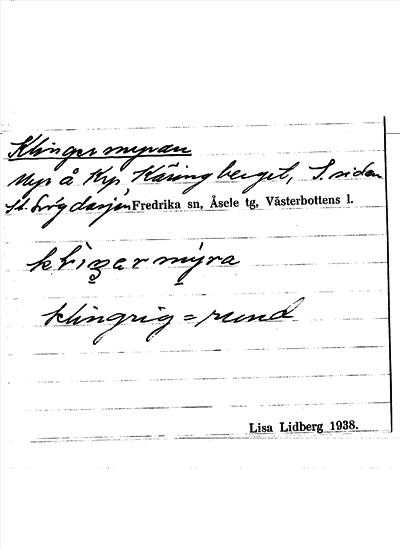 Klingermyran
Myr å Krp, Käringberget, S. sidan
St. Högdasjön Fredrika sn, Åsele tg, Västerbottens l.
klingrig = rund
Lisa Lidberg 1938.